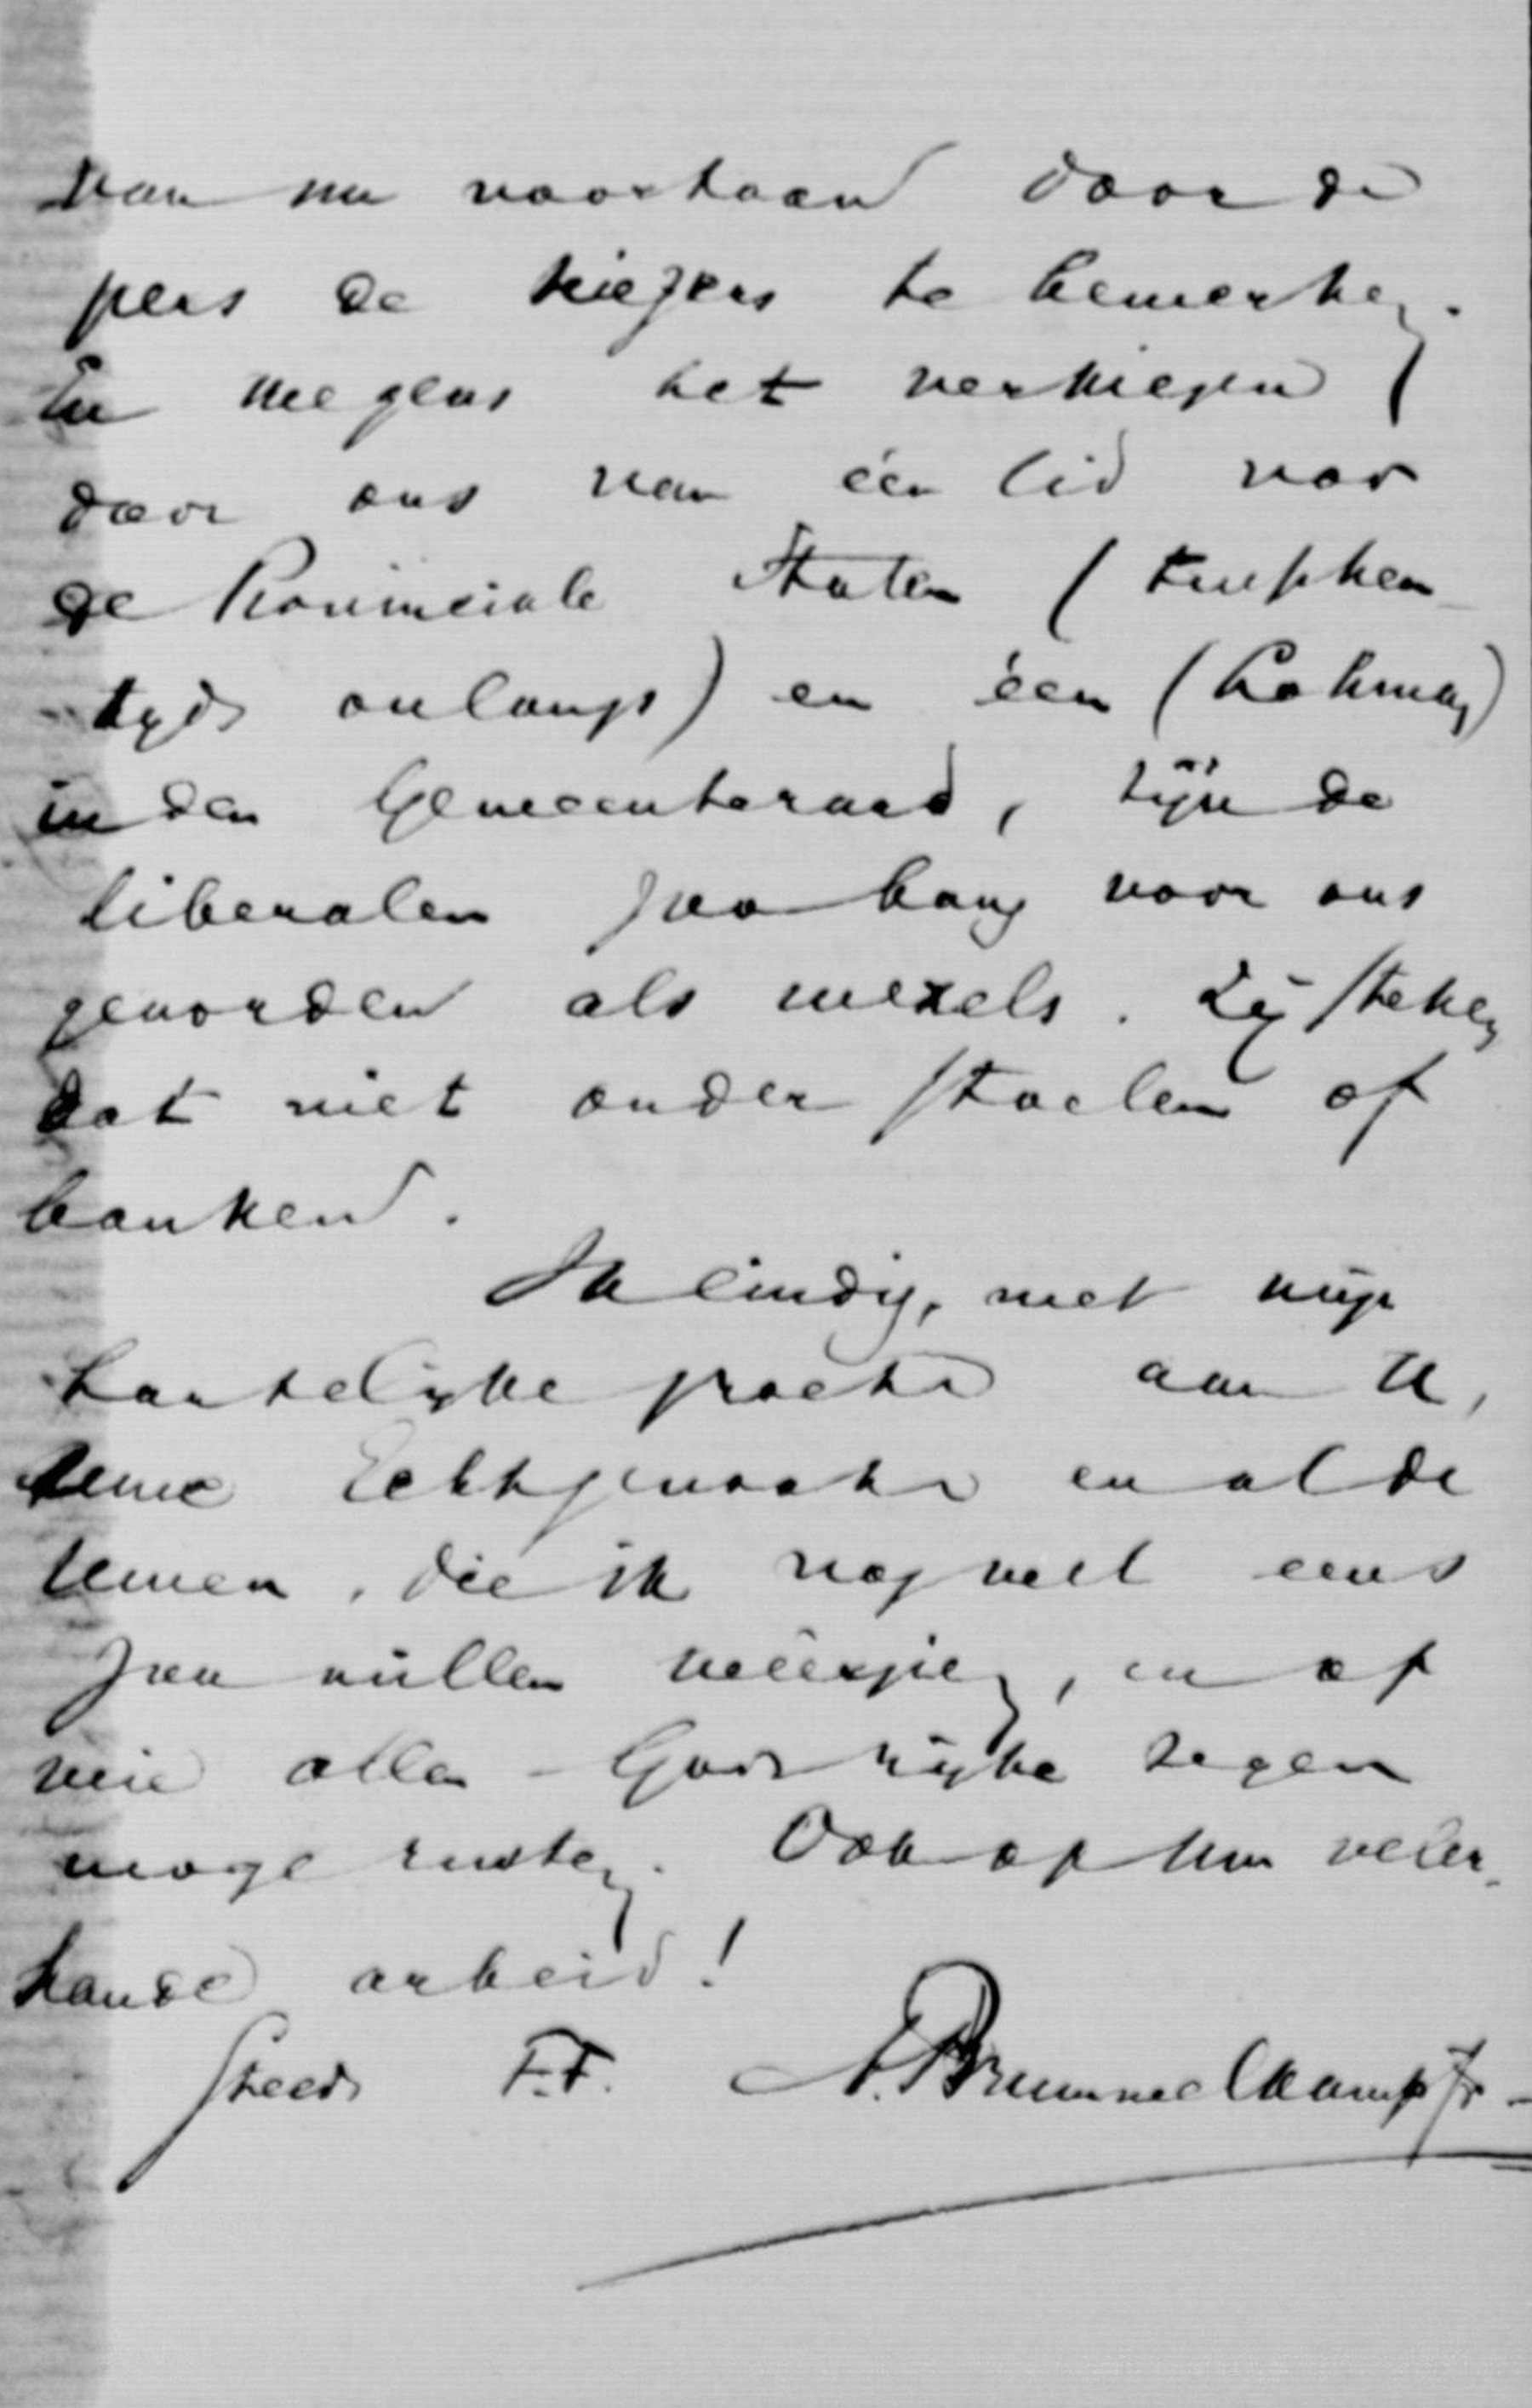 van nu voortaan door de
pers de kiezers te bewerken.
En wegens het verkiezen
door ons van één lid voor
de Provinciale Staten (tusschen
tyds onlangs) en één (Lohman)
in den Gemeenteraad, zijn de
liberalen zoo bang voor ons
geworden als wezels. Zij steken
dat niet onder stoelen of
banken.
Ik eindig, met mijn
hartelyke groete aan U,
Uwe Echtgenoote en al de
Uwen, die ik nog wel eens
zou willen weêrzien, en op
wie allen Gods rijke zegen
moge rusten. Ook op Uw veler
hande arbeid!
Steeds t.t. A. Brummelkamp Jr.